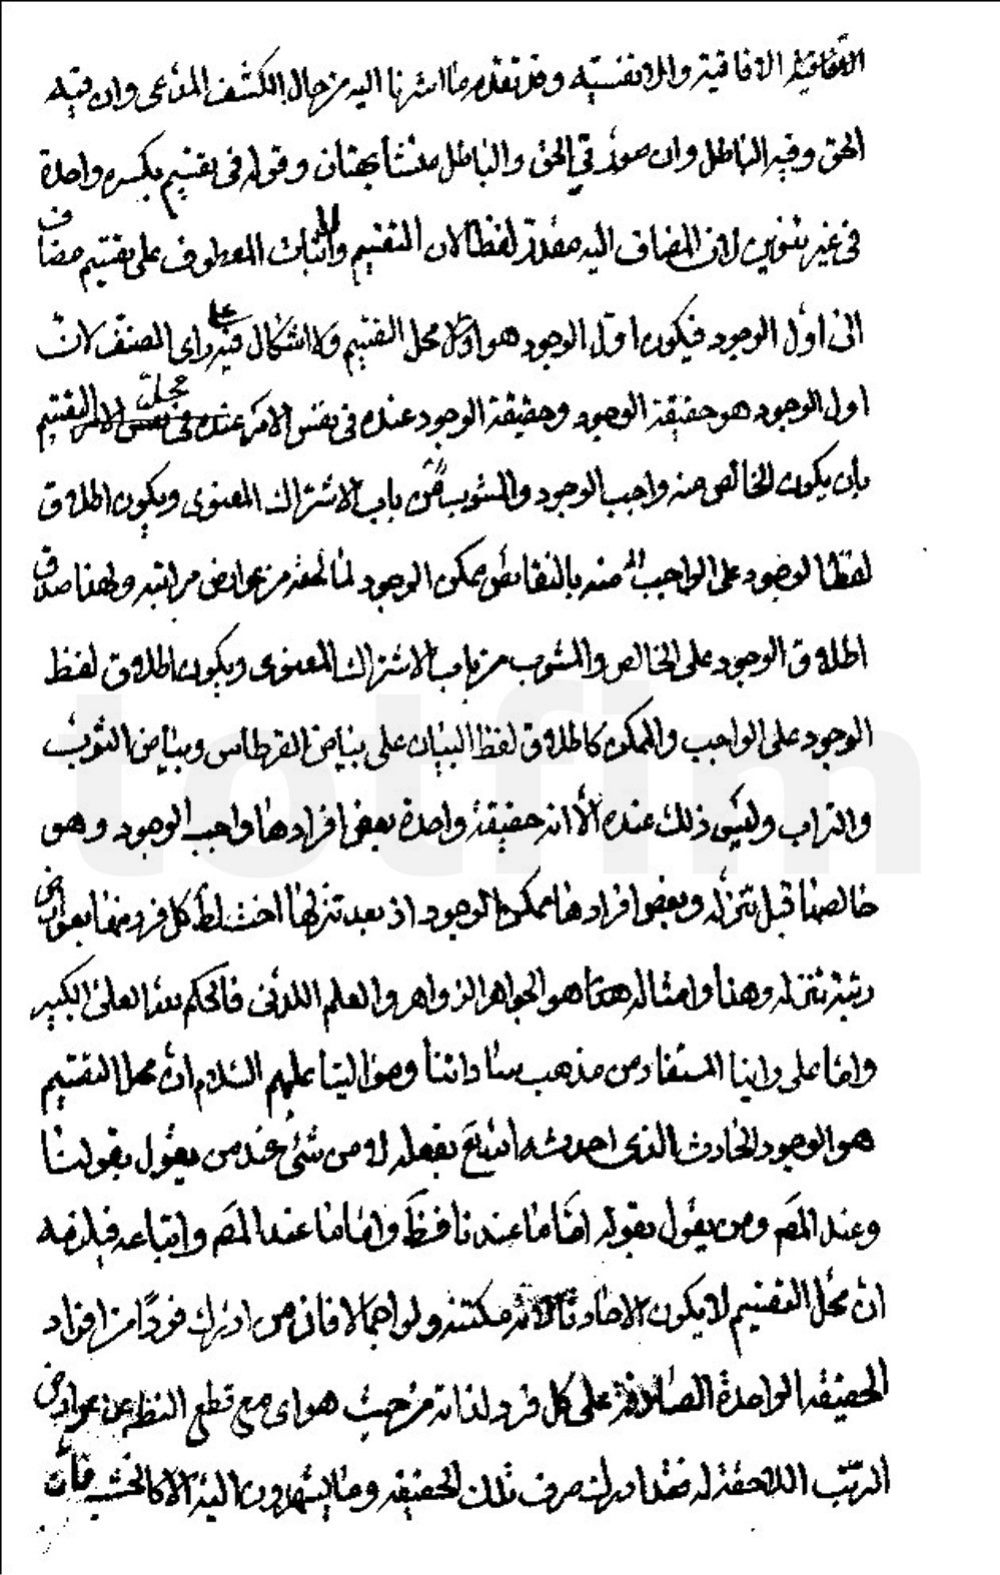 الآفاقية الافاقية والانفسية وقد تقدم ما اشرنا اليه من حال الكشف المدعى وان فيه
الحق وفيه الباطل وان موذقي الحق والباطل منشأ بهتان وقوله في تقسيم بكسرة واحدة
في غير تنوين لان المضاف اليه مقدر لفظا لان التقسيم والاثبات المعطوف على تقسيم مضاف
الى اول الوجود فيكون اول الوجود هو اول محل التقسيم ولا اشكال فيه على راى المصنف لان
اول الوجود هو حقيقة الوجود وحقيقة الوجود عنده في نفس الامر محل التقسيم
بان يكون الخالص منه واجب الوجود والمشوب من باب الاشتراك المعنوى ويكون اطلاق
لفظ الوجود على الواجب منه بالنقائص ممكن الوجود لما لحقه من عوارض مراتبه ولهذا صدق
اطلاق الوجود على الخالص والمشوب من باب الاشتراك المعنوى ويكون اطلاق لفظ
الوجود على الواجب والممكن كاطلاق لفظ البياض على بياض القرطاس وبياض الثوب
والتراب وليس ذلك عنده الا انه حقيقة واحدة بعض افرادها واجب الوجود وهو
خالصها قبل تنزله وبعض افرادها ممكن الوجود اذ بعد تنزلها اختلط كل فرد منها بعوارض
رتبة تنزله وهذا وامثاله عندهم هو الجواهر الزواهر والعلم اللدنى فالحكم لله العلى الكبير
واما على راينا المستفاد من مذهب ساداتنا وموالينا عليهم السلام ان محل التقسيم
هو الوجود الحادث الذى احدثه الله تع بفعله لا من شئ عند من يقول بقولنا
وعند المص ومن يقول بقوله اما ما عندنا فظ واما ما عند المص واتباعه فيلزمه
ان محل التقسيم لا يكون الا حادثا لانه مكتنه ولو اجمالا فان من ادرك فردا من افراد
الحقيقة الواحدة الصادقة على كل فرد لذاته من حيث هو اى مع قطع النظر عن عوارض
الرتب اللاحقة له فقد ادرك صرف تلك الحقيقة وما يشيرون اليه الا كالخشب فان
totfim